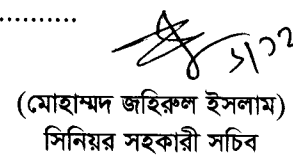 ..............
৬/১২
(মোহাম্মদ জহিরুল ইসলাম)
সিনিয়র সহকারী সচিব